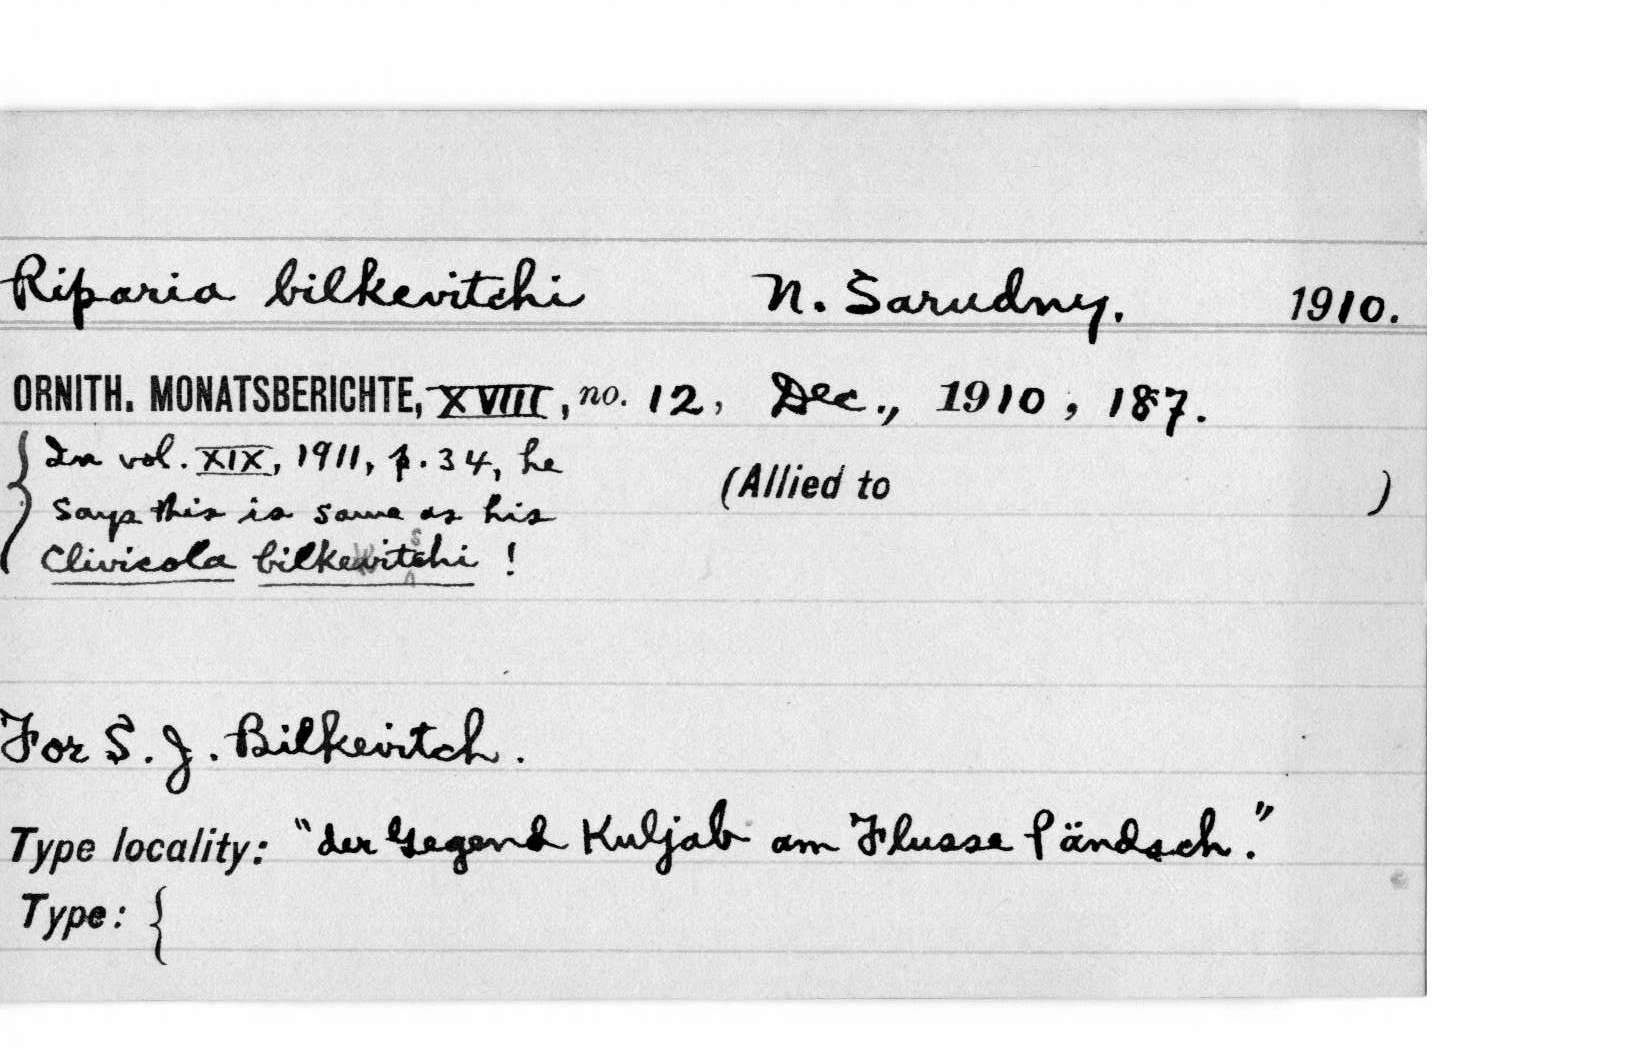 Riparia bilkevitchi N. Sarudny. 1910.
ORNITH. MONATSBERICHTE, XVIII, no. 12, Dec., 1910, 187.
{ In vol. XIX, 1911, p. 34, he
says this is same as his
Clivicola bilkewitschi !
(Allied to )
For S. J. Bilkevitch.
Type locality: "der Gegend Kuljab am Flusse Pändsch."
Type: {